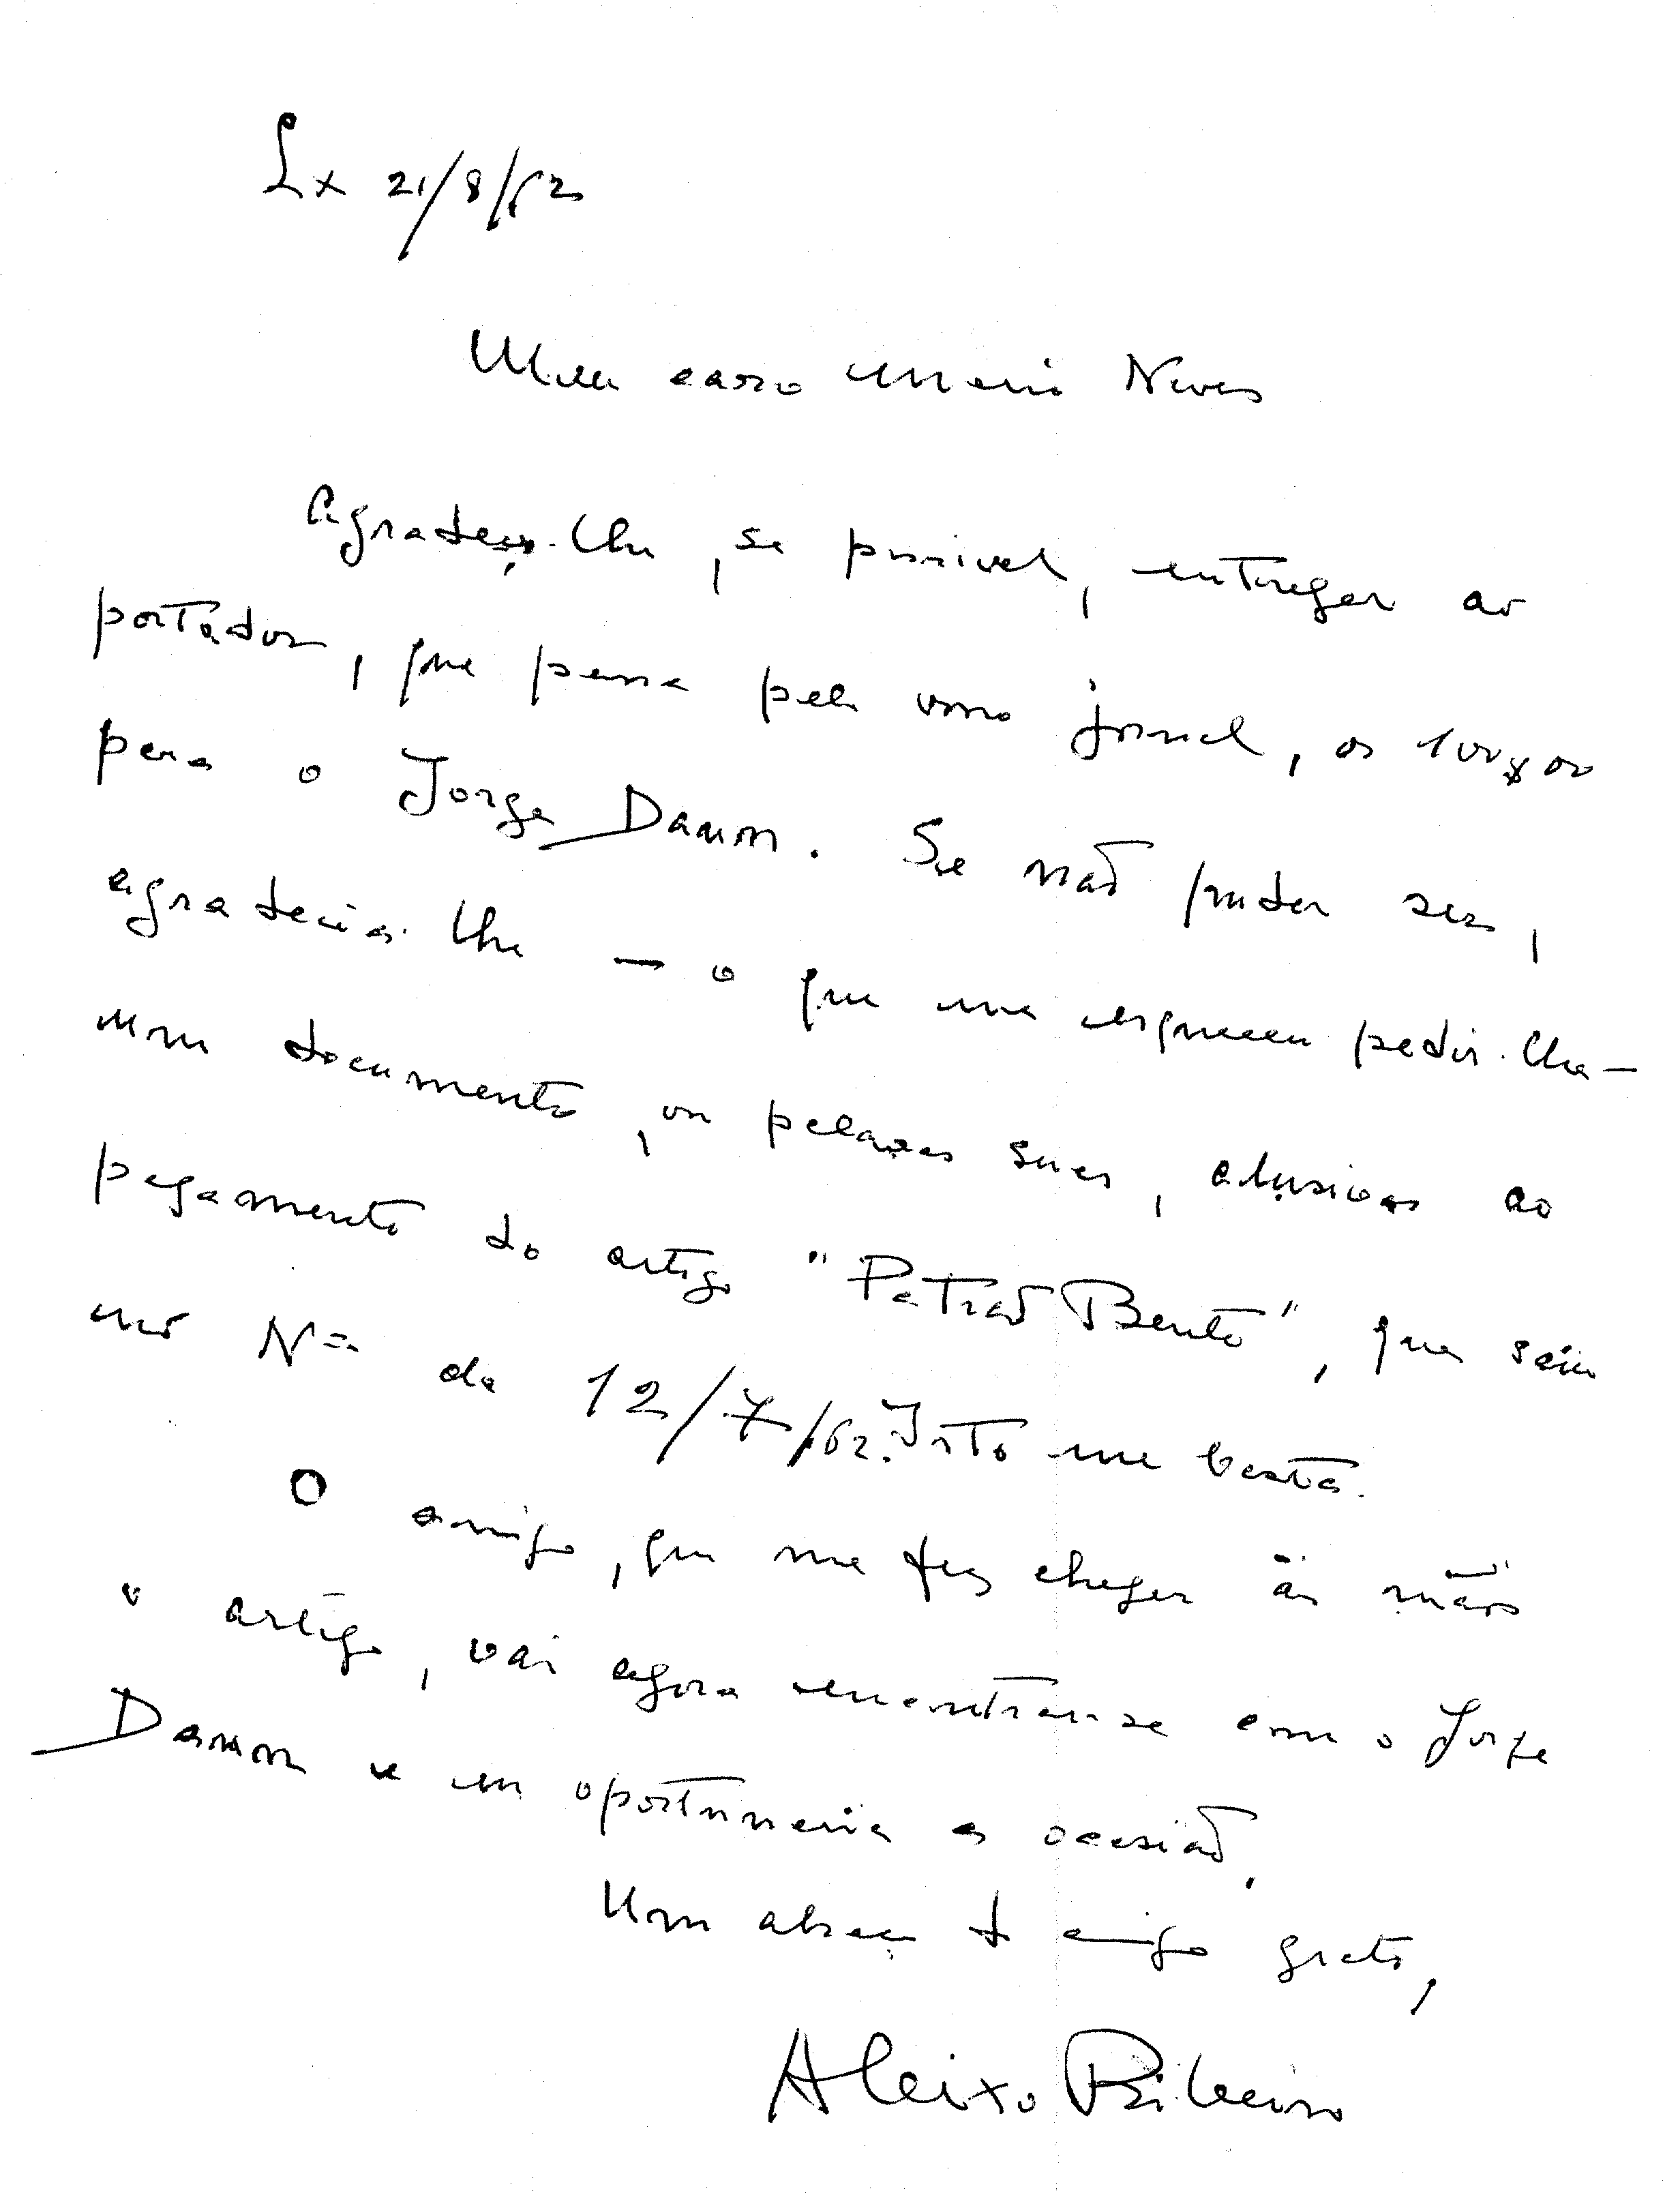 Lx 21/8/62
Meu caro Mario Neves
Agradeço-lhe, se possivel, entregar ao
portador, que passa pelo vosso jornal, os 100$00
para o Jorge Daun. Se não puder ser,
agradecia-lhe — o que me esqueceu pedir-lhe —
um documento, ou palavras suas, alusivas ao
pagamento do artigo "Patrão Bento", que saíu
no Nº de 12/7/62. Isto me basta.
O amigo, que me fez chegar às mãos
o artigo, vai agora encontrar-se com o Jorge
Daun e eu oportunaria a ocasião.
Um abraço do amigo grato,
Aleixo Ribeiro